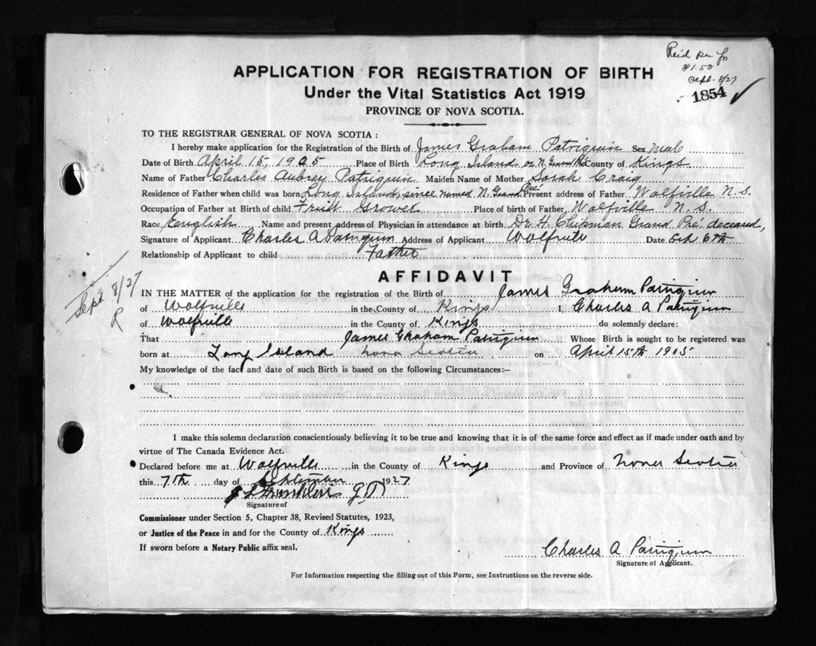 Paid
$1.50
Sept. 8/27
1854
APPLICATION FOR REGISTRATION OF BIRTH
Under the Vital Statistics Act 1919
PROVINCE OF NOVA SCOTIA.
TO THE REGISTRAR GENERAL OF NOVA SCOTIA:
I hereby make application for the Registration of the Birth of James Graham Patriquin Sex Male
Date of Birth April 15 1905 Place of Birth Long Island or N. Grand Pré County of Kings
Name of Father Charles Aubrey Patriquin Maiden Name of Mother Sarah Craig
Residence of Father when child was born Long Island, since named N. Grand Pré Present address of Father Wolfville N.S.
Occupation of Father at Birth of child Fruit Grower Place of birth of Father Wolfville N.S.
Race English Name and present address of Physician in attendance at birth Dr. Chipman Grand Pré deceased,
Signature of Applicant Charles A Patriquin Address of Applicant Wolfville Date 6th
Relationship of Applicant to child Father
Sept 8/27
R
AFFIDAVIT
IN THE MATTER of the application for the registration of the Birth of James Graham Patriquin
of Wolfville in the County of Kings I, Charles A Patriquin
of Wolfville in the County of Kings do solemnly declare:
That James Graham Patriquin Whose Birth is sought to be registered was
born at Long Island Nova Scotia on April 15th 1905
My knowledge of the fact and date of such Birth is based on the following Circumstances:—
I make this solemn declaration conscientiously believing it to be true and knowing that it is of the same force and effect as if made under oath and by
virtue of The Canada Evidence Act.
Declared before me at Wolfville in the County of Kings and Province of Nova Scotia
this 7th day of September 1927
Signature of
Commissioner under Section 5, Chapter 38, Revised Statutes, 1923,
or Justice of the Peace in and for the County of Kings
If sworn before a Notary Public affix seal.
Charles A Patriquin
Signature of Applicant.
For Information respecting the filling out of this Form, see Instructions on the reverse side.